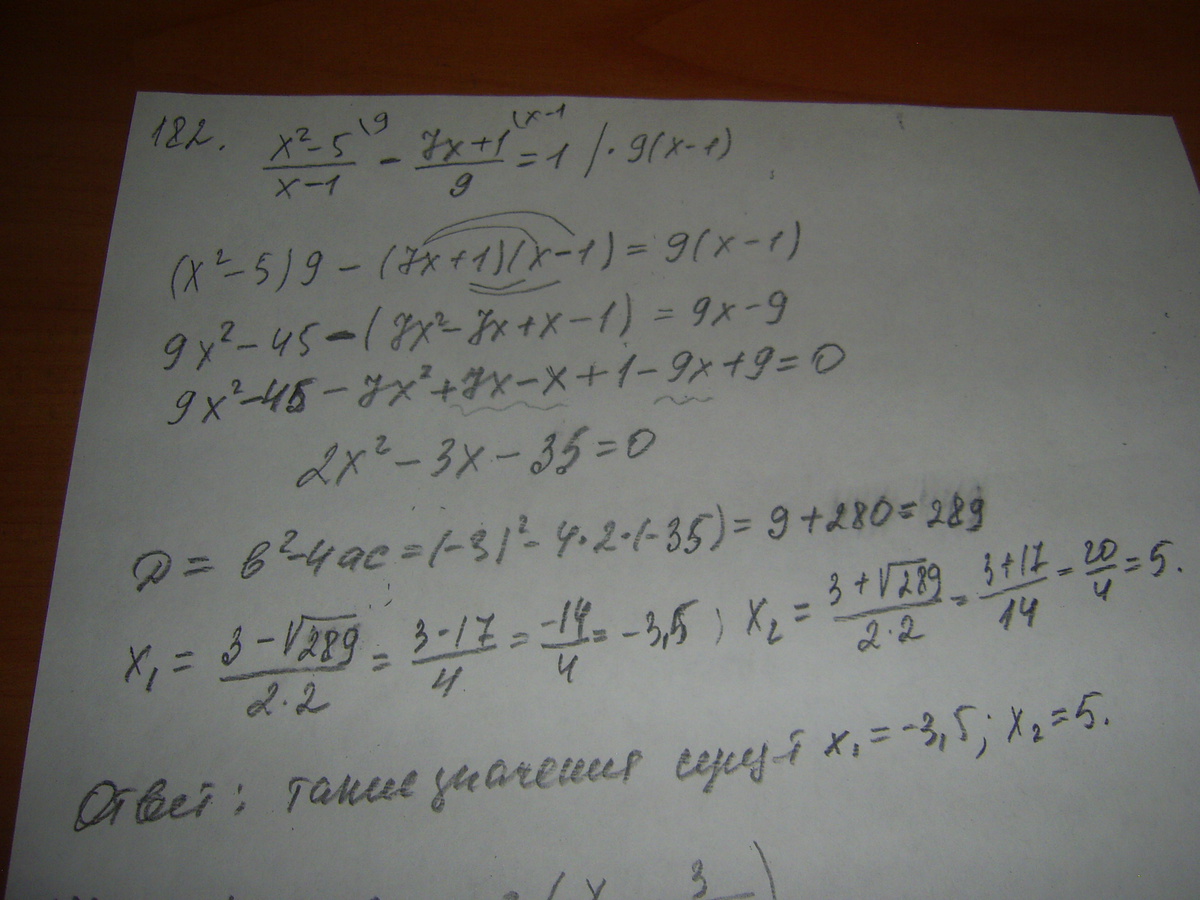 182. (x²-5)/(x-1) \9 - (7x+1)/9 (x-1 = 1 /· 9(x-1)
(x²-5)9 - (7x+1)(x-1) = 9(x-1)
9x²-45-(7x²-7x+x-1) = 9x-9
9x²-45-7x²+7x-x+1-9x+9=0
2x²-3x-35=0
D = b²-4ac = (-3)²-4·2·(-35) = 9+280 = 289
x₁ = (3-√289)/(2·2) = (3-17)/4 = -14/4 = -3,5; x₂ = (3+√289)/(2·2) = (3+17)/14 = 20/4 = 5.
Ответ: такие значения x₁ = -3,5; x₂ = 5.